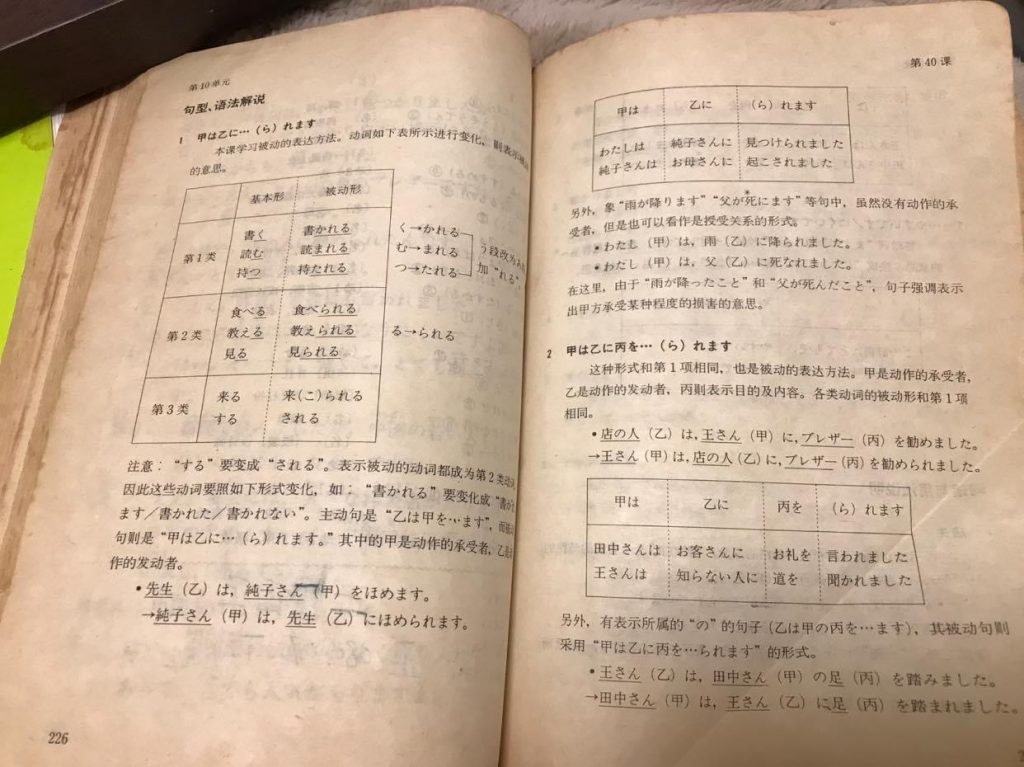 第10单元
句型、语法解说
1 甲は乙に…（ら）れます
本课学习被动的表达方法。动词如下表所示进行变化，则表示
的意思。
基本形 被动形
第1类 書く 書かれる く→かれる
読む 読まれる む→まれる
持つ 持たれる つ→たれる
う段改为あ
加“れる”
第2类 食べる 食べられる
教える 教えられる る→られる
見る 見られる
第3类 来る 来(こ)られる
する される
注意：“する”要变成“される”。表示被动的动词都成为第2类动词
因此这些动词要照如下形式变化，如：“書かれる”要变化成“書か
ます／書かれた／書かれない”。主动句是“乙は甲を…ます”，而
句则是“甲は乙に…（ら）れます。”其中的甲是动作的承受者，乙是
作的发动者。
・先生（乙）は，純子さん（甲）をほめます。
→純子さん（甲）は，先生（乙）にほめられます。
226
第40课
甲は 乙に （ら）れます
わたしは 純子さんに 見つけられました
純子さんは お母さんに 起こされました
另外，象“雨が降ります”“父が死*にます”等句中，虽然没有动作的承
受者，但是也可以看作是授受关系的形式。
・わたし（甲）は，雨（乙）に降られました。
・わたし（甲）は，父（乙）に死なれました。
在这里，由于“雨が降ったこと”和“父が死んだこと”，句子强调表示
出甲方承受某种程度的损害的意思。
2 甲は乙に丙を…（ら）れます
这种形式和第1项相同，也是被动的表达方法。甲是动作的承受者，
乙是动作的发动者，丙则表示目的及内容。各类动词的被动形和第1项
相同。
・店の人（乙）は，王さん（甲）に，ブレザー（丙）を勧めました。
→王さん（甲）は，店の人（乙）に，ブレザー（丙）を勧められました。
甲は 乙に 丙を （ら）れます
田中さんは お客さんに お礼を 言われました
王さんは 知らない人に 道を 聞かれました
另外，有表示所属的“の”的句子（乙は甲の丙を…ます），其被动句则
采用“甲は乙に丙を…られます”的形式。
・王さん（乙）は，田中さん（甲）の足（丙）を踏みました。
→田中さん（甲）は，王さん（乙）に足（丙）を踏まれました。